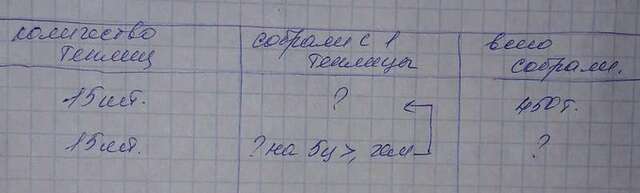 количество собрали с 1 всего
теплиц теплицы собрали.
15шт. ? 450т.
15шт. ? на 5ц >, чем ?